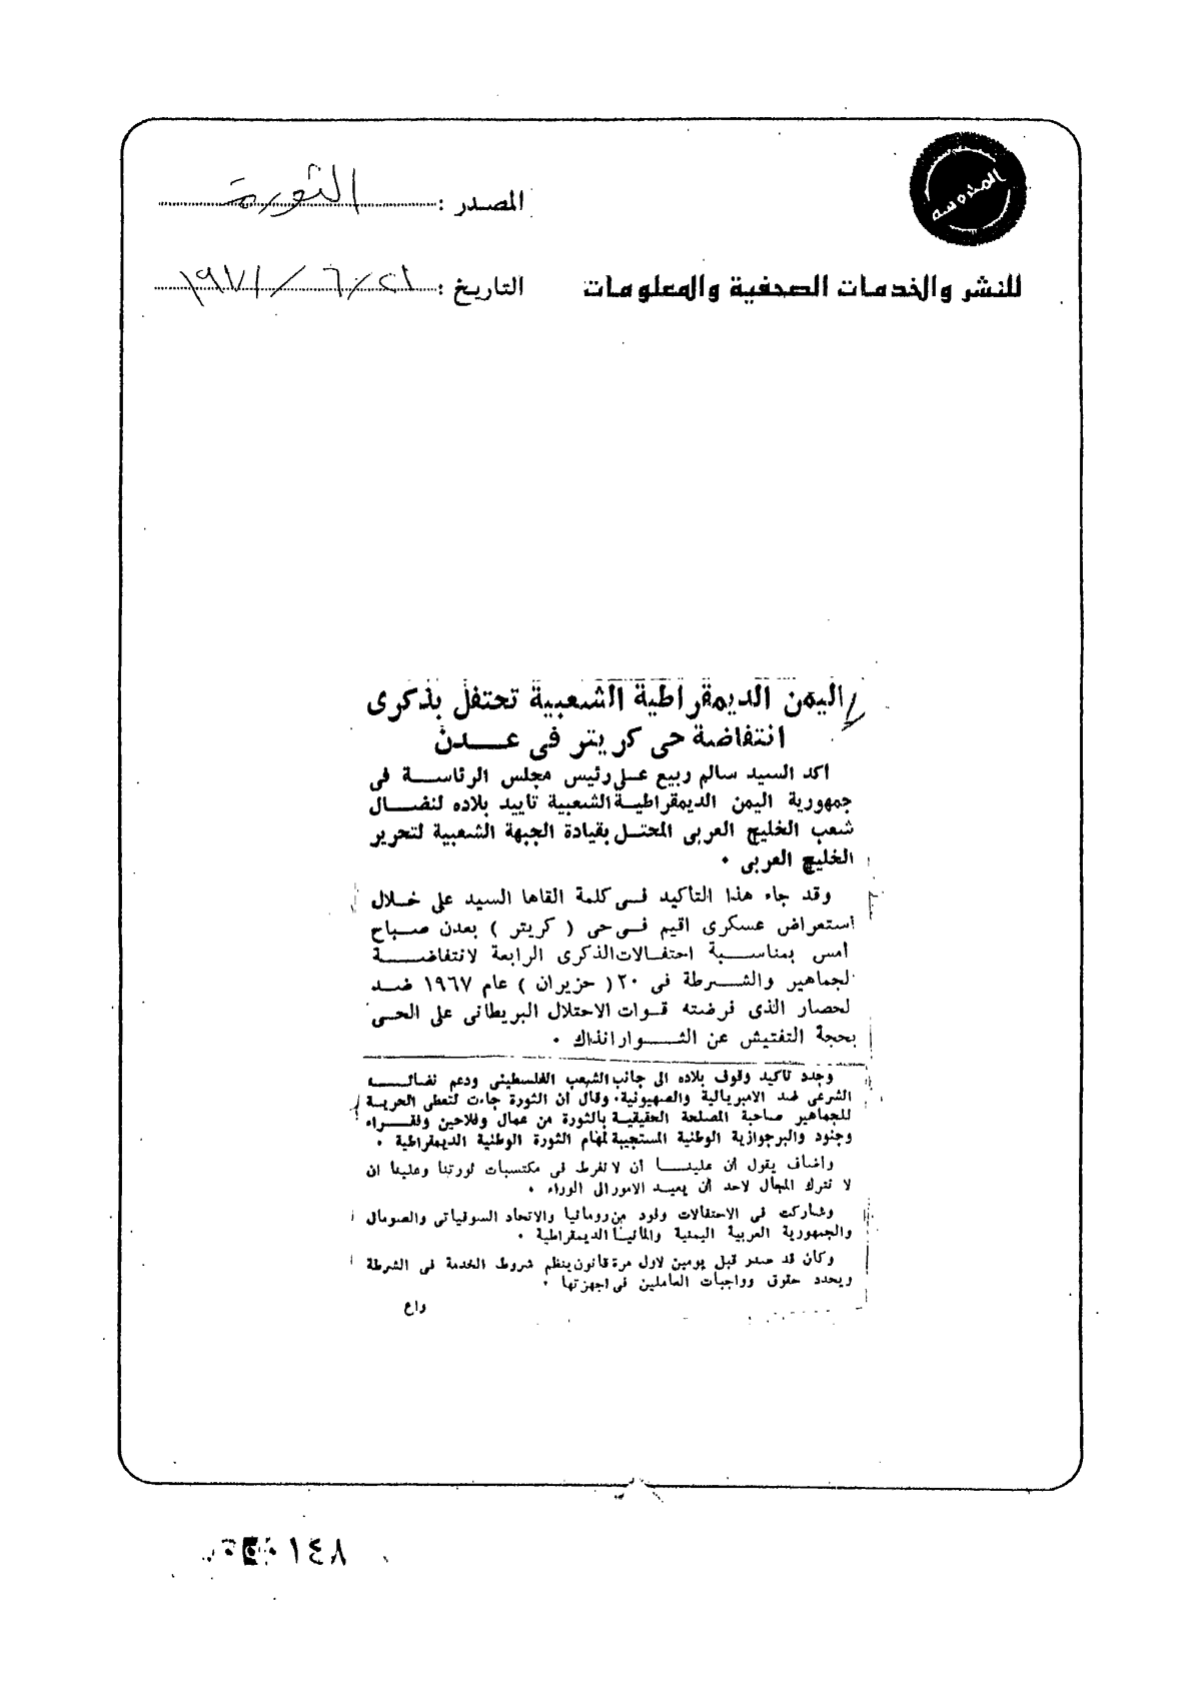 المحروسة
المصدر : الثورة
للنشر والخدمات الصحفية والمعلومات
التاريخ : ٢١ / ٦ / ١٩٧١
اليمن الديمقراطية الشعبية تحتفل بذكرى
انتفاضة حى كريتر فى عـــدن
اكد السيد سالم ربيع على رئيس مجلس الرئاســة فى
جمهورية اليمن الديمقراطيــة الشعبية تاييد بلاده لنضــال
شعب الخليج العربى المحتــل بقيادة الجبهة الشعبية لتحرير
الخليج العربى ٠
وقد جاء هذا التاكيد فــى كلمة القاها السيد على خــلال
استعراض عسكرى اقيم فــى حى ( كريتر ) بعدن صبـاح
أمس بمناسـبة احتفـالات الذكرى الرابعة لانتفاضـــة
لجماهير والشــرطة فى ٢٠ ( حزيران ) عام ١٩٦٧ ضــد
لحصار الذى فرضته قـوات الاحتلال البريطانى على الحــى
بحجة التفتيش عن الثــــوار انذاك ٠
وجدد تاكيد وقوف بلاده الى جانب الشعب الفلسطينى ودعم نضالـــه
الشرعى ضد الامبريالية والصهيونية، وقال ان الثورة جاءت لتعطى الحريــة
للجماهير صاحبة المصلحة الحقيقيــة بالثورة من عمال وفلاحين وفقــراء
وجنود والبرجوازية الوطنية المستجيبة لمهام الثورة الوطنية الديمقراطية ٠
واضاف يقول ان علينـــا ان لا نفرط فى مكتسبات ثورتنا وعلينا ان
لا نترك المجال لاحد أن يعيــد الامور الى الوراء ٠
وشاركت فى الاحتفالات وفود من رومانيا والاتحاد السوفياتى والصومال
والجمهورية العربية اليمنية والمانيـا الديمقراطية ٠
وكان قد صدر قبل يومين لاول مرة قانون ينظم شروط الخدمة فى الشرطة
ويحدد حقوق وواجبات العاملين فى اجهزتها ٠
واع
١٤٨